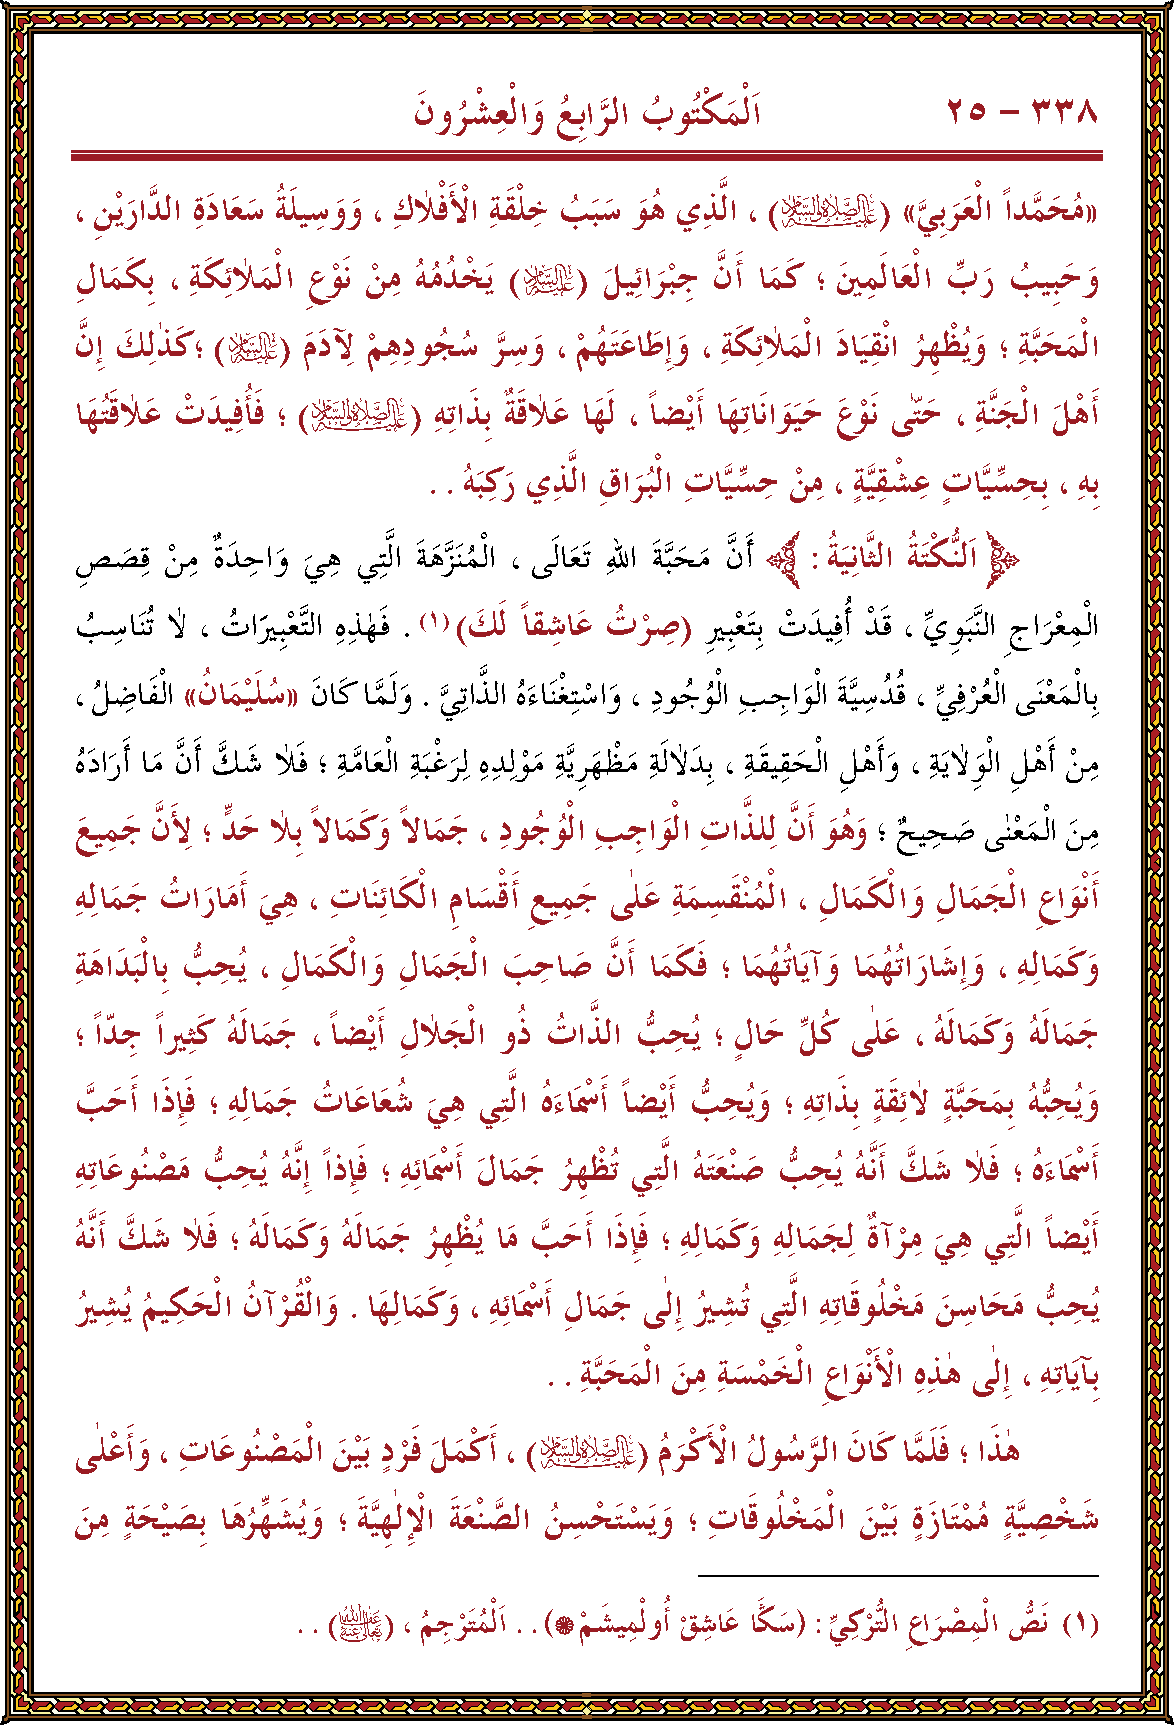 ٣٣٨ – ٢٥ اَلْمَكْتُوبُ الرَّابِعُ وَالْعِشْرُونَ
«مُحَمَّداً الْعَرَبِيَّ» (عَلَيْهِ الصَّلَاةُ وَالسَّلَامُ) ، الَّذِي هُوَ سَبَبُ خِلْقَةِ الْأَفْلَاكِ ، وَوَسِيلَةُ سَعَادَةِ الدَّارَيْنِ ،
وَحَبِيبُ رَبِّ الْعَالَمِينَ ؛ كَمَا أَنَّ جِبْرَائِيلَ (عَلَيْهِ السَّلَامُ) يَخْدُمُهُ مِنْ نَوْعِ الْمَلَائِكَةِ ، بِكَمَالِ
الْمَحَبَّةِ ؛ وَيُظْهِرُ انْقِيَادَ الْمَلَائِكَةِ ، وَإِطَاعَتَهُمْ ، وَسِرَّ سُجُودِهِمْ لِآدَمَ (عَلَيْهِ السَّلَامُ) ؛ كَذٰلِكَ إِنَّ
أَهْلَ الْجَنَّةِ ، حَتّٰى نَوْعَ حَيَوَانَاتِهَا أَيْضاً ، لَهَا عَلَاقَةٌ بِذَاتِهِ (عَلَيْهِ الصَّلَاةُ وَالسَّلَامُ) ؛ فَأُفِيدَتْ عَلَاقَتُهَا
بِهِ ، بِحِسِّيَّاتٍ عِشْقِيَّةٍ ، مِنْ حِسِّيَّاتِ الْبُرَاقِ الَّذِي رَكِبَهُ . .
﴿اَلنُّكْتَةُ الثَّانِيَةُ :﴾ أَنَّ مَحَبَّةَ اللهِ تَعَالَى ، الْمُنَزَّهَةَ الَّتِي هِيَ وَاحِدَةٌ مِنْ قِصَصِ
الْمِعْرَاجِ النَّبَوِيِّ ، قَدْ أُفِيدَتْ بِتَعْبِيرِ (صِرْتُ عَاشِقاً لَكَ) (١) . فَهٰذِهِ التَّعْبِيرَاتُ ، لَا تُنَاسِبُ
بِالْمَعْنَى الْعُرْفِيِّ ، قُدُسِيَّةَ الْوَاجِبِ الْوُجُودِ ، وَاسْتِغْنَاءَهُ الذَّاتِيَّ . وَلَمَّا كَانَ «سُلَيْمَانُ» الْفَاضِلُ ،
مِنْ أَهْلِ الْوِلَايَةِ ، وَأَهْلِ الْحَقِيقَةِ ، بِدَلَالَةِ مَظْهَرِيَّةِ مَوْلِدِهِ لِرَغْبَةِ الْعَامَّةِ ؛ فَلَا شَكَّ أَنَّ مَا أَرَادَهُ
مِنَ الْمَعْنٰى صَحِيحٌ ؛ وَهُوَ أَنَّ لِلذَّاتِ الْوَاجِبِ الْوُجُودِ ، جَمَالاً وَكَمَالاً بِلَا حَدٍّ ؛ لِأَنَّ جَمِيعَ
أَنْوَاعِ الْجَمَالِ وَالْكَمَالِ ، الْمُنْقَسِمَةِ عَلٰى جَمِيعِ أَقْسَامِ الْكَائِنَاتِ ، هِيَ أَمَارَاتُ جَمَالِهِ
وَكَمَالِهِ ، وَإِشَارَاتُهُمَا وَآيَاتُهُمَا ؛ فَكَمَا أَنَّ صَاحِبَ الْجَمَالِ وَالْكَمَالِ ، يُحِبُّ بِالْبَدَاهَةِ
جَمَالَهُ وَكَمَالَهُ ، عَلٰى كُلِّ حَالٍ ؛ يُحِبُّ الذَّاتُ ذُو الْجَلَالِ أَيْضاً ، جَمَالَهُ كَثِيراً جِدّاً ؛
وَيُحِبُّهُ بِمَحَبَّةٍ لَائِقَةٍ بِذَاتِهِ ؛ وَيُحِبُّ أَيْضاً أَسْمَاءَهُ الَّتِي هِيَ شُعَاعَاتُ جَمَالِهِ ؛ فَإِذَا أَحَبَّ
أَسْمَاءَهُ ؛ فَلَا شَكَّ أَنَّهُ يُحِبُّ صَنْعَتَهُ الَّتِي تُظْهِرُ جَمَالَ أَسْمَائِهِ ؛ فَإِذاً إِنَّهُ يُحِبُّ مَصْنُوعَاتِهِ
أَيْضاً الَّتِي هِيَ مِرْآةٌ لِجَمَالِهِ وَكَمَالِهِ ؛ فَإِذَا أَحَبَّ مَا يُظْهِرُ جَمَالَهُ وَكَمَالَهُ ؛ فَلَا شَكَّ أَنَّهُ
يُحِبُّ مَحَاسِنَ مَخْلُوقَاتِهِ الَّتِي تُشِيرُ إِلٰى جَمَالِ أَسْمَائِهِ ، وَكَمَالِهَا . وَالْقُرْآنُ الْحَكِيمُ يُشِيرُ
بِآيَاتِهِ ، إِلٰى هٰذِهِ الْأَنْوَاعِ الْخَمْسَةِ مِنَ الْمَحَبَّةِ . .
هٰذَا ؛ فَلَمَّا كَانَ الرَّسُولُ الْأَكْرَمُ (عَلَيْهِ الصَّلَاةُ وَالسَّلَامُ) ، أَكْمَلَ فَرْدٍ بَيْنَ الْمَصْنُوعَاتِ ، وَأَعْلٰى
شَخْصِيَّةٍ مُمْتَازَةٍ بَيْنَ الْمَخْلُوقَاتِ ؛ وَيَسْتَحْسِنُ الصَّنْعَةَ الْإِلٰهِيَّةَ ؛ وَيُشَهِّرُهَا بِصَيْحَةٍ مِنَ
(١) نَصُّ الْمِصْرَاعِ التُّرْكِيِّ : (سَڭَا عَاشِقْ أُولْمِيشَمْ) . . اَلْمُتَرْجِمُ ، (عَفَا اللهُ تَعَالٰى عَنْهُ) . .